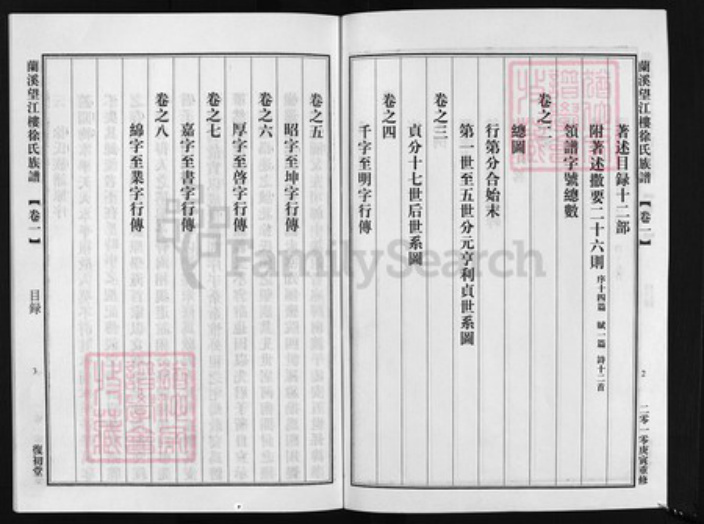 蘭溪望江樓徐氏族譜 【卷一】
2
二零一零庚寅重修
著述目録十二部
附著述撒要二十六則 序十四篇 賦一篇 詩十二首
領譜字號總數
卷之二
總圖
行第分合始末
第一世至五世分元亨利貞世系圖
卷之三
貞分十七世后世系圖
卷之四
千字至明字行傳
卷之五
昭字至坤字行傳
卷之六
厚字至啓字行傳
卷之七
嘉字至書字行傳
卷之八
綿字至業字行傳
蘭溪望江樓徐氏族譜 【卷一】
目録
3
復初堂
FamilySearch